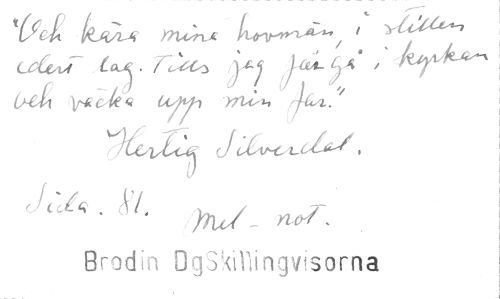 "Och kära mina hovmän, i stillen
edert lag. Tills jag får gå i kyrkan
och väcka upp min far."
Hertig Silverdal.
Sida. 81. Mel - not.
Brodin DgSkillingvisorna